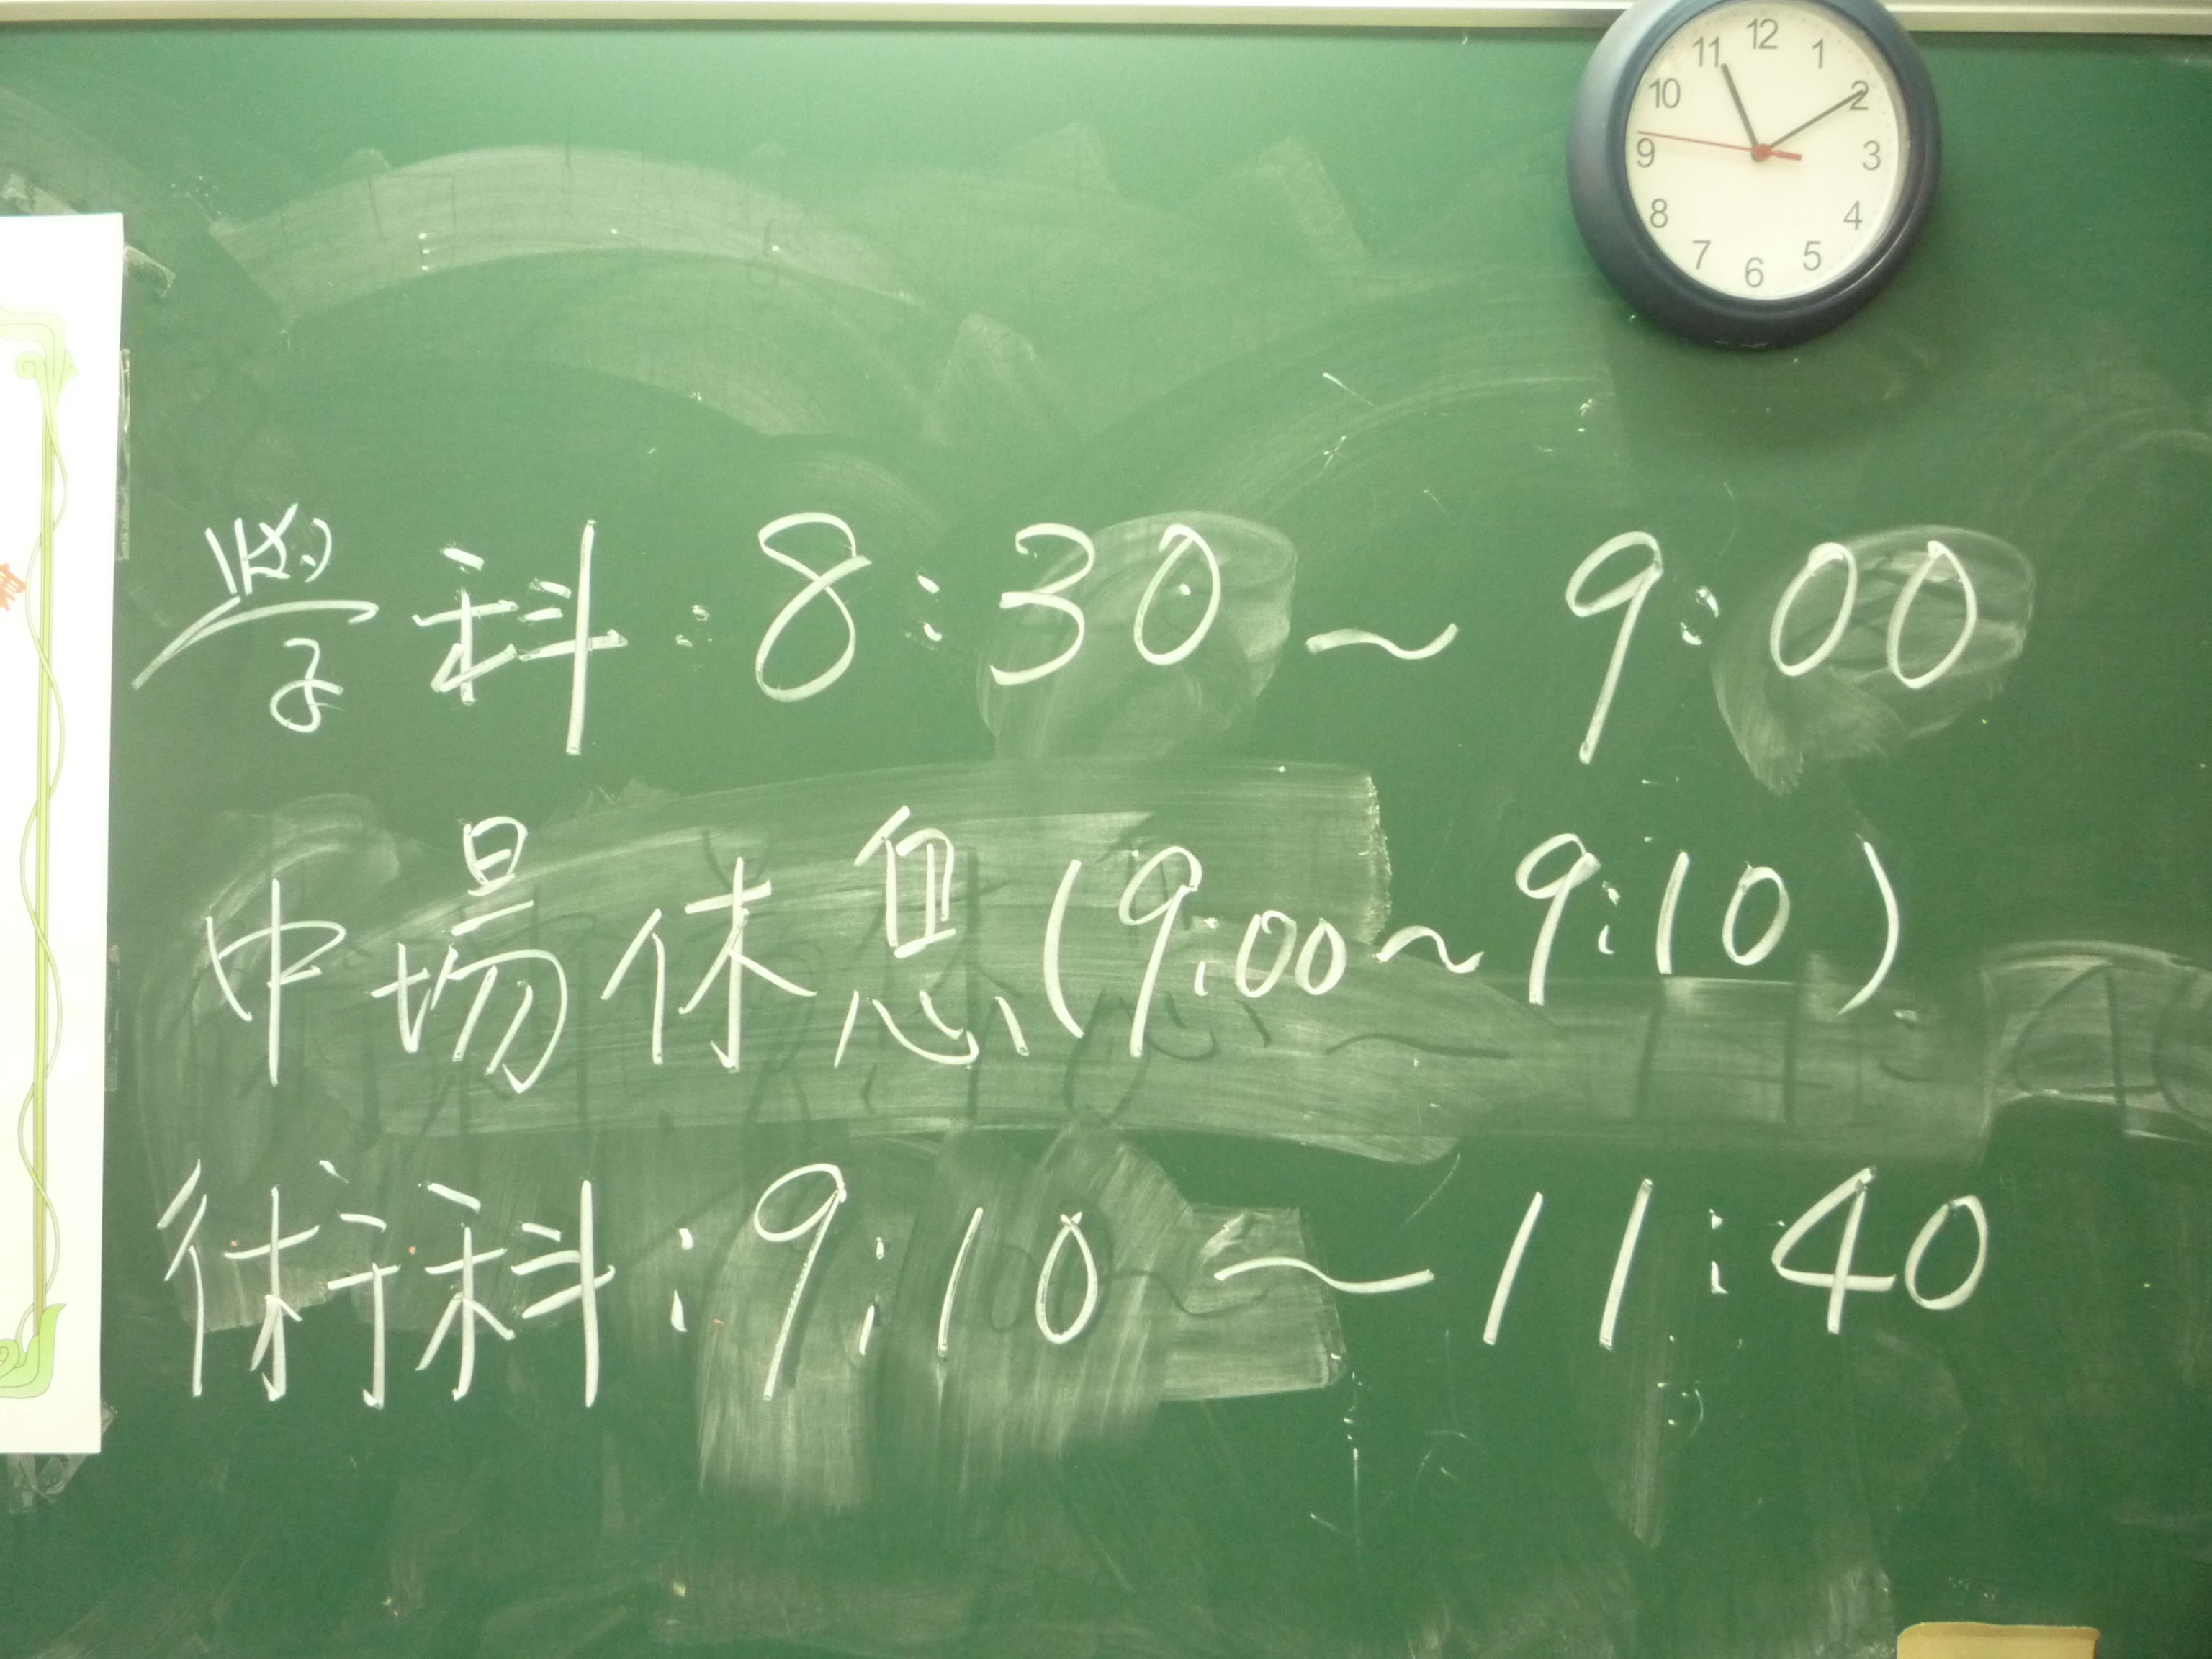 12
11 1
10 2
9 3
8 4
7 5
6
學科:8:30~9:00
中場休息(9:00~9:10)
術科:9:10~11:40